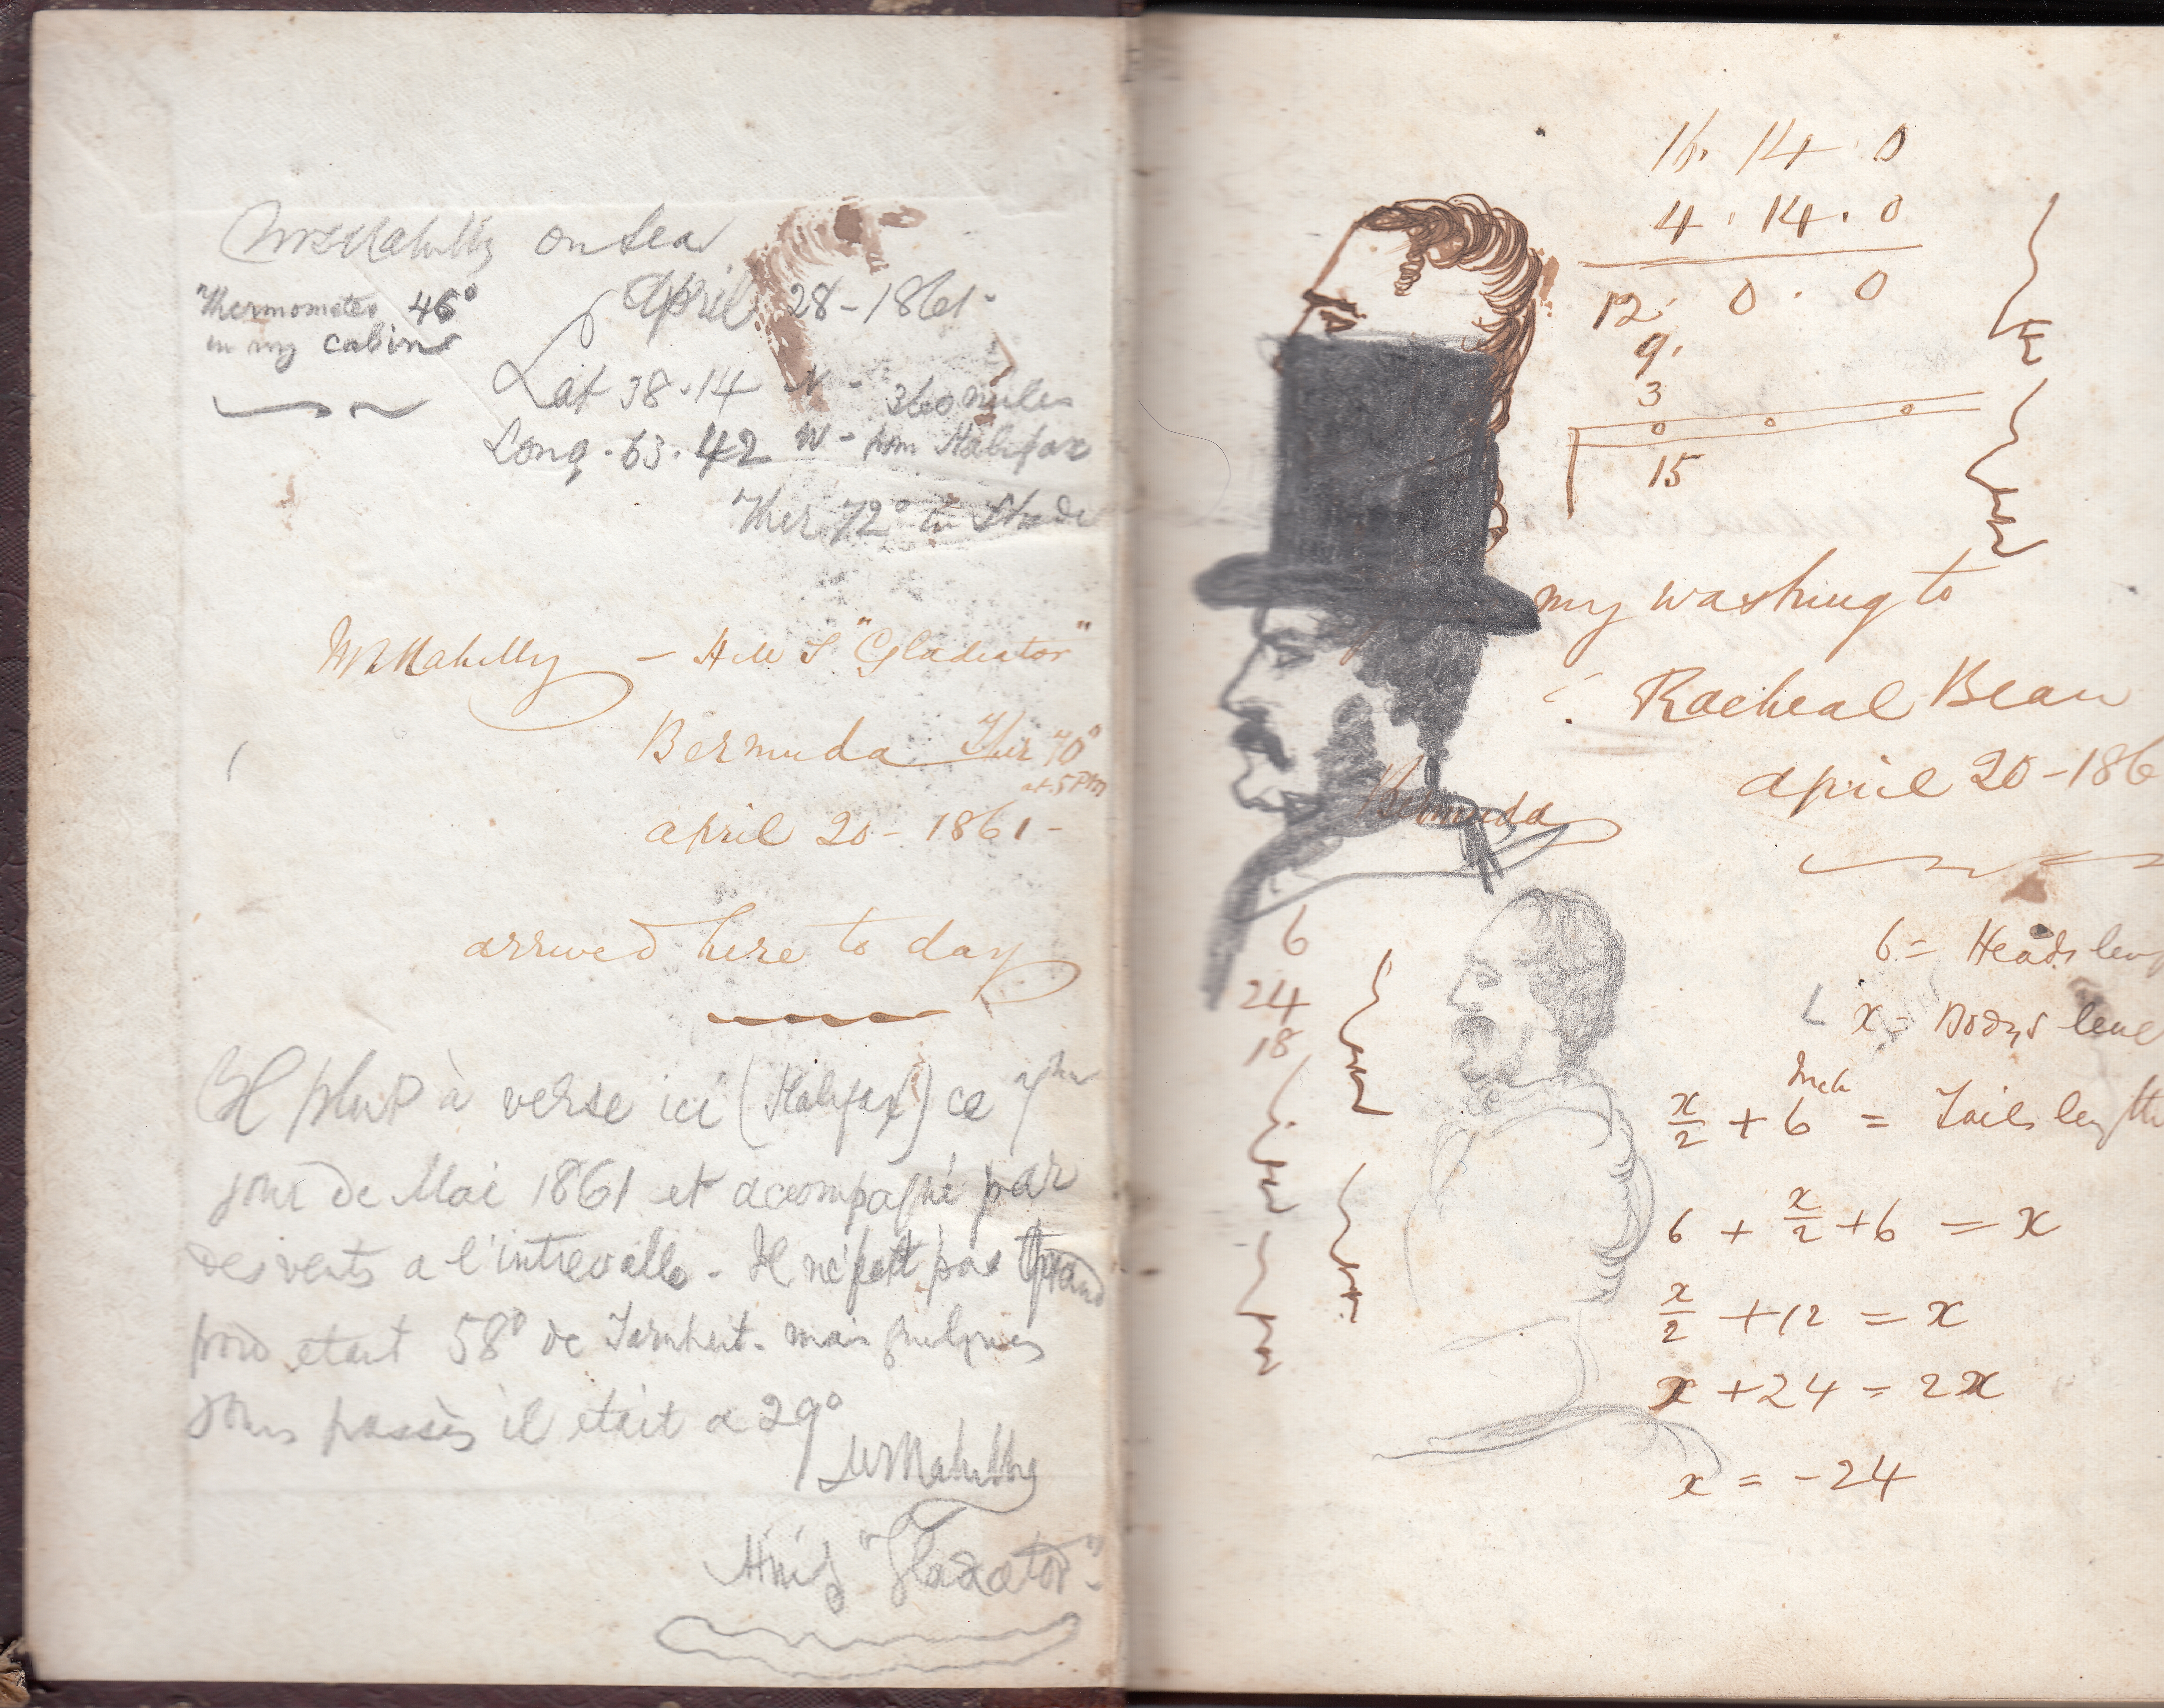 on Sea
April 28 - 1861 -
Thermometer 46°
in my cabin
Lat 38 . 14 N - 360 miles
Long . 63 . 42 W - from Halifax
Ther 72° in Shade
- H M S "Gladiator"
Bermuda Ther 70°
at 5 PM
april 20 - 1861 -
arrived here to day
Il plut à verse ici (Halifax) ce
jour de Mai 1861 et accompagné par
des vents a l'intrevalle - Il ne fait pas
froid etant 58° de mais quelques
jours passès il était a 29°
HMS "Gladiator" -
16 . 14 . 0
4 . 14 . 0
12 . 0 . 0
9 .
3
0
15
my washing to
Racheal Bean
april 20 - 186
Bermuda
6
24
18
6 = Heads leng
x = Bodys
x/2 + 6 Inch = Tails length
6 + x/2 + 6 = x
x/2 + 12 = x
x + 24 = 2x
x = - 24